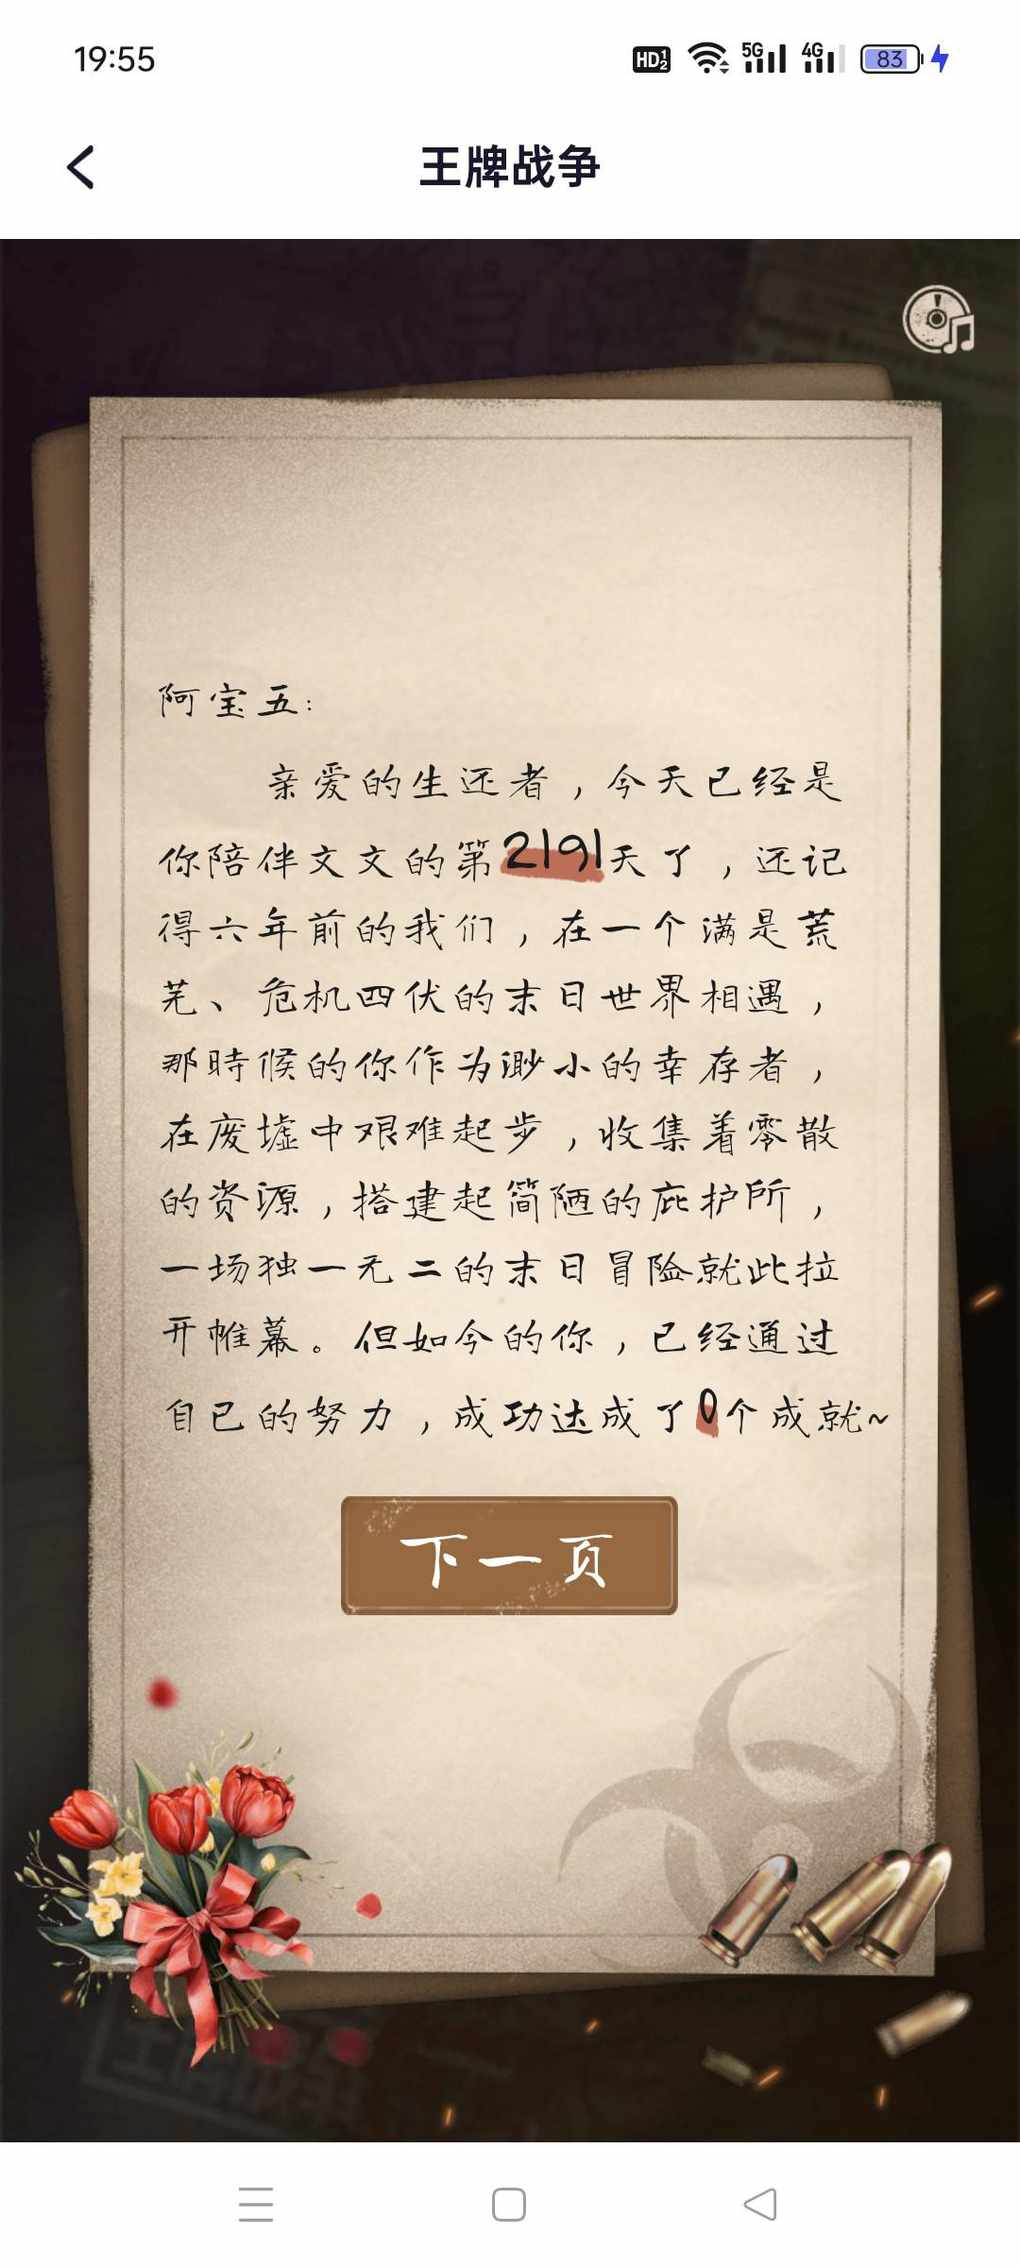 19:55
HD 1 2 5G 4G 83
王牌战争
阿宝五:
亲爱的生还者，今天已经是
你陪伴文文的第2191天了，还记
得六年前的我们，在一个满是荒
芜、危机四伏的末日世界相遇，
那時候的你作为渺小的幸存者，
在废墟中艰难起步，收集着零散
的资源，搭建起简陋的庇护所，
一场独一无二的末日冒险就此拉
开帷幕。但如今的你，已经通过
自己的努力，成功达成了0个成就~
下一页